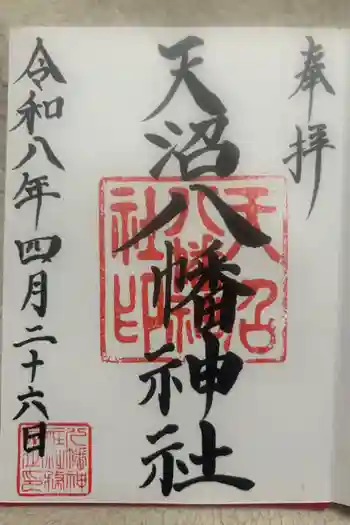 奉拝
天沼八幡神社
令和八年四月二十六日
天沼八幡神社印